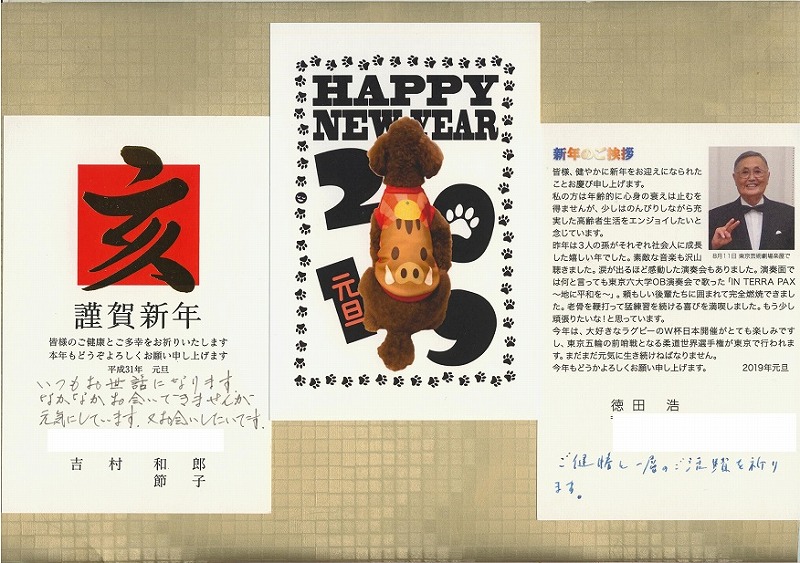 亥
謹賀新年
皆様のご健康とご多幸をお祈りいたします
本年もどうぞよろしくお願い申し上げます
平成31年　元旦
いつもお世話になります.
なかなかお会いできませんが
元気にしています. 又お会いしたいです.
吉村和郎
節子
HAPPY
NEW YEAR
2019
元旦
新年のご挨拶
皆様、健やかに新年をお迎えになられた
ことお慶び申し上げます。
私の方は年齢的に心身の衰えは止むを
得ませんが、少しはのんびりしながら充
実した高齢者生活をエンジョイしたいと
念じています。
昨年は3人の孫がそれぞれ社会人に成長
した嬉しい年でした。素敵な音楽も沢山
聴きました。涙が出るほど感動した演奏会もありました。演奏面で
は何と言っても東京六大学OB演奏会で歌った「IN TERRA PAX
～地に平和を～」。頼もしい後輩たちに囲まれて完全燃焼できまし
た。老骨を鞭打って猛練習を続ける喜びを満喫しました。もう少し
頑張りたいな!と思っています。
今年は、大好きなラグビーのW杯日本開催がとても楽しみですし
、東京五輪の前哨戦となる柔道世界選手権が東京で行われま
す。まだまだ元気に生き続けねばなりません。
今年もどうかよろしくお願い申し上げます。　2019年元旦
8月11日 東京芸術劇場楽屋で
徳田　浩
ご健勝と一層のご活躍を祈り
ます。